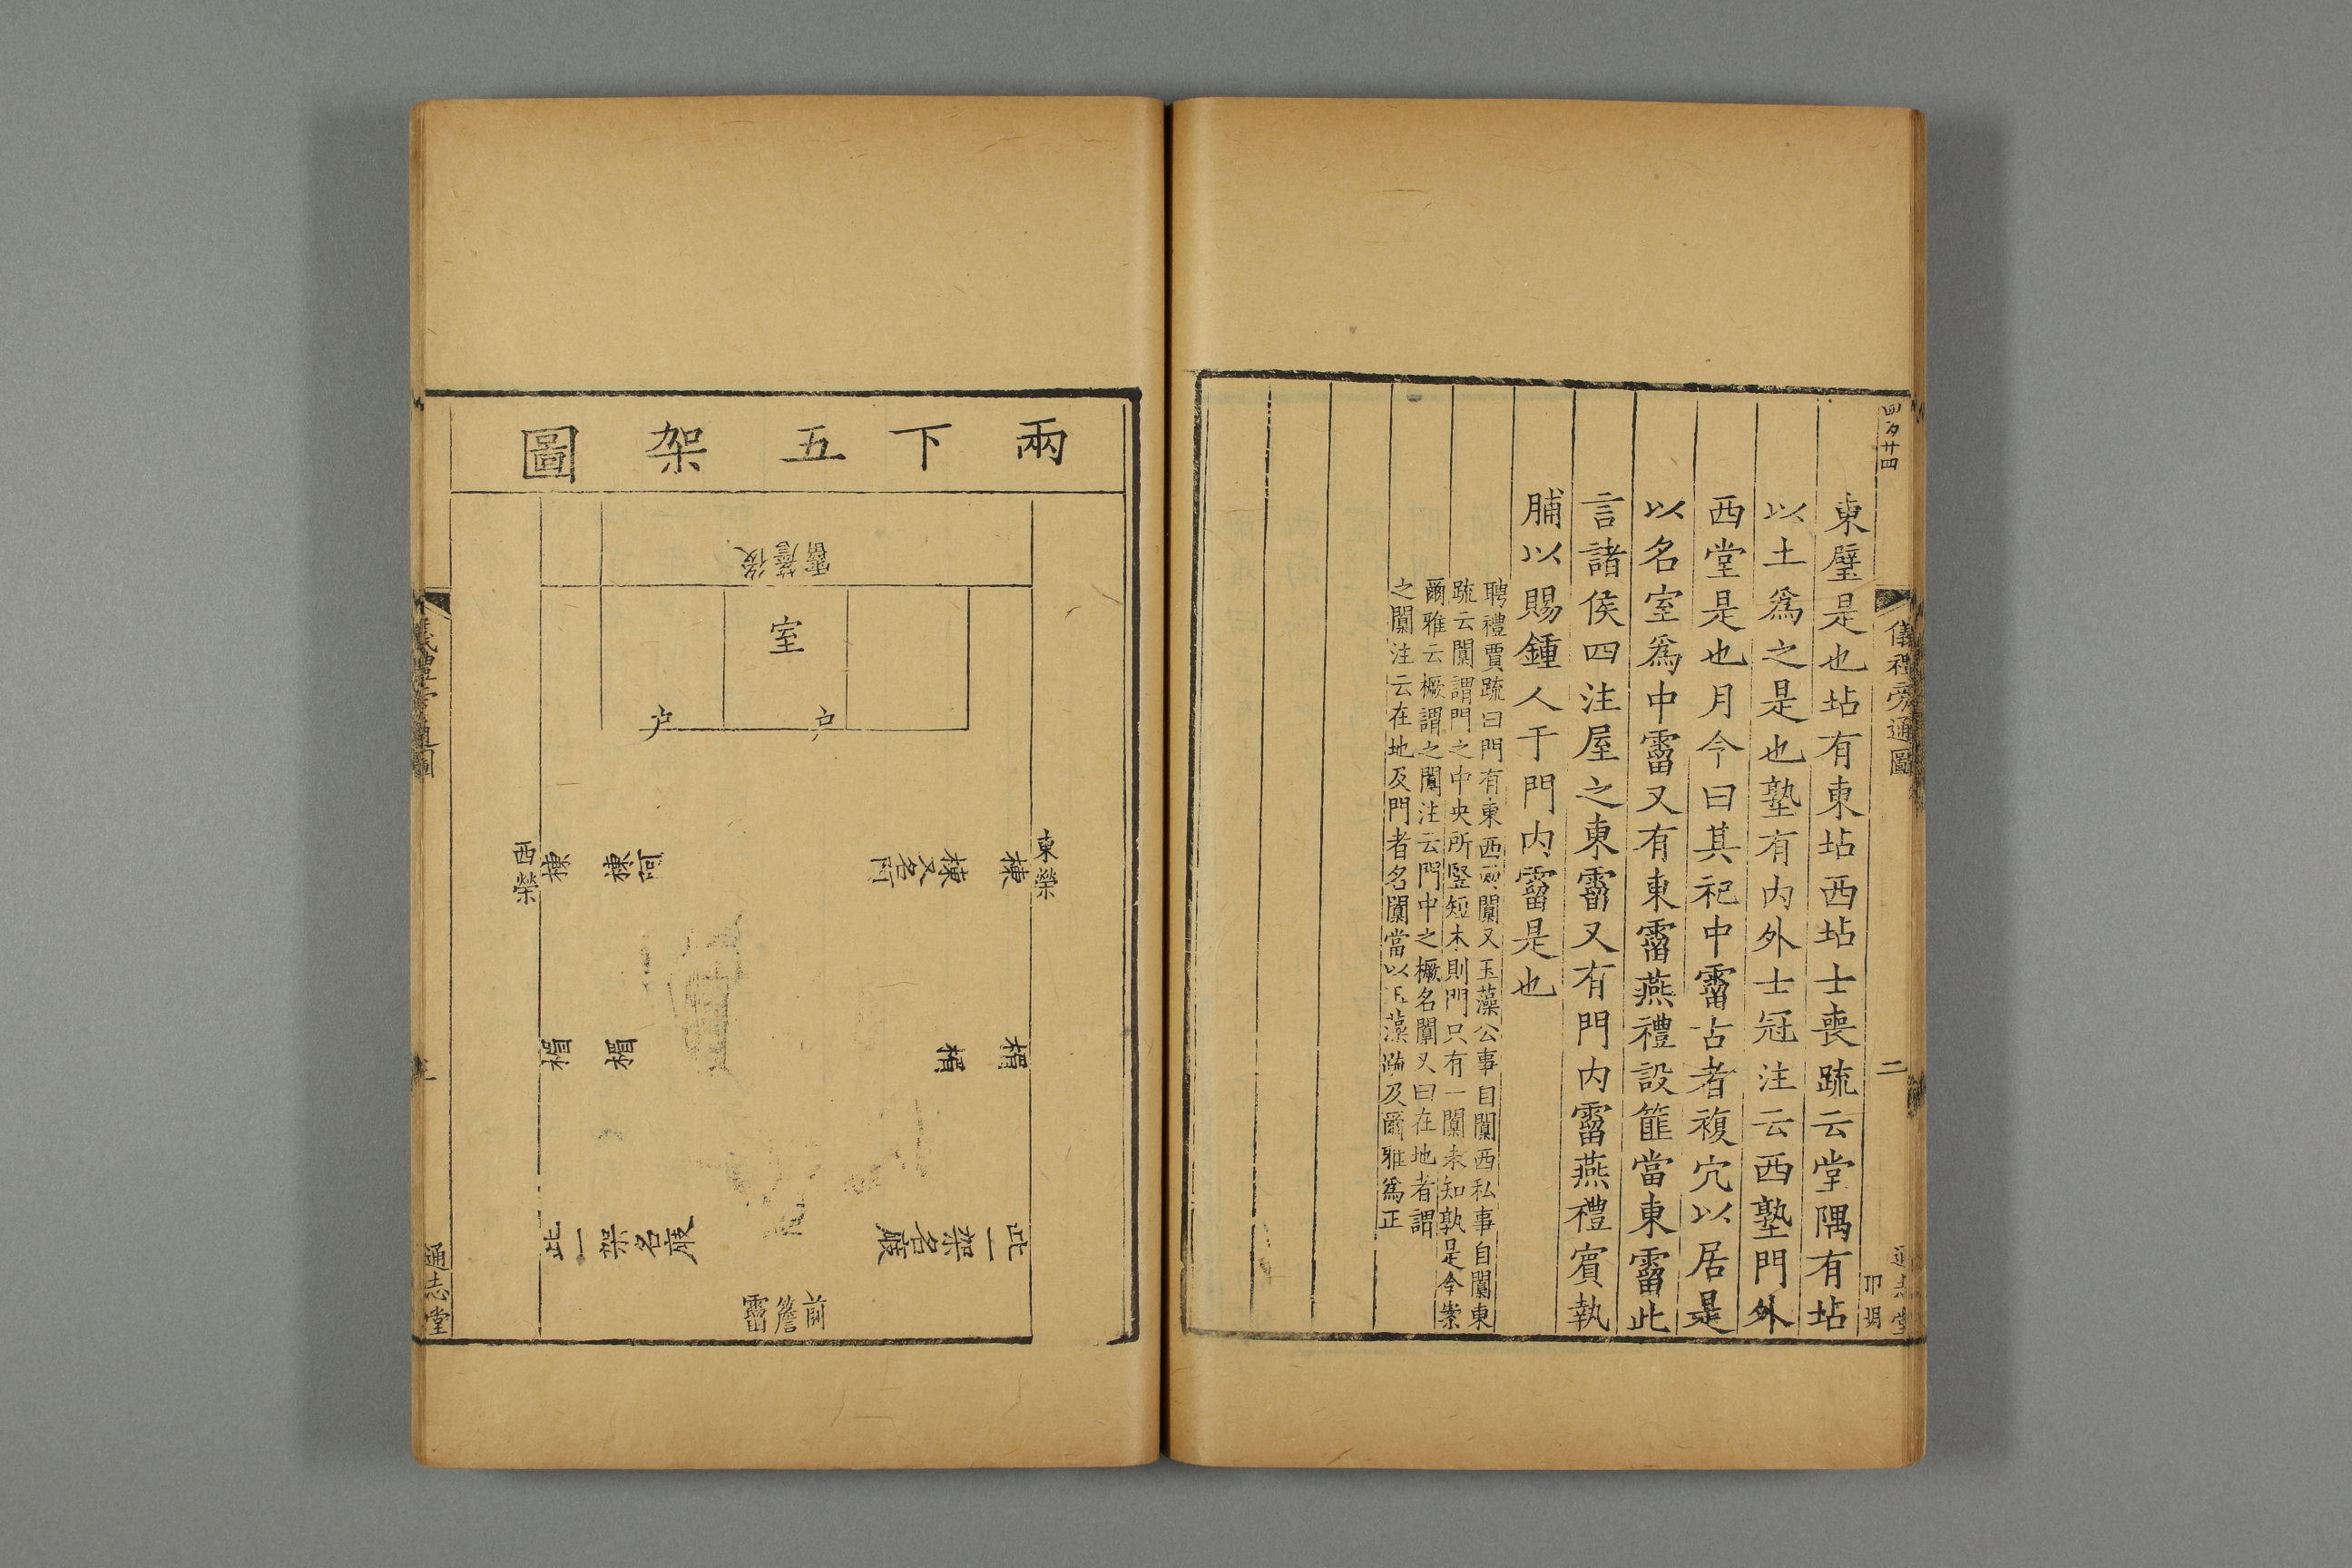 四〇廿四
儀禮旁通圖
二
通志堂
東壁是也坫有東坫西坫士喪疏云堂隅有坫
以土爲之是也塾有内外士冠注云西塾門外
西堂是也月令曰其祀中霤古者複穴以居是
以名室爲中霤又有東霤燕禮設篚當東霤此
言諸侯四注屋之東霤又有門内霤燕禮賓執
脯以賜鍾人于門内霤是也
聘禮賈疏曰門有東西兩闑又玉藻公事自闑西私事自闑東
疏云闑謂門之中央所竪短木則門只有一闑未知孰是今案
爾雅云橛謂之闑注云門中之橛名闑又曰在地者謂
之闑注云在地及門者名闑當以玉藻疏及爾雅爲正
兩下五架圖
後簷霤
室
户
户
東榮
棟
棟又名阿
棟阿
棟
西榮
楣
楣
楣
楣
此一架名庪
此一架名庪
前簷霤
儀禮旁通圖
通志堂